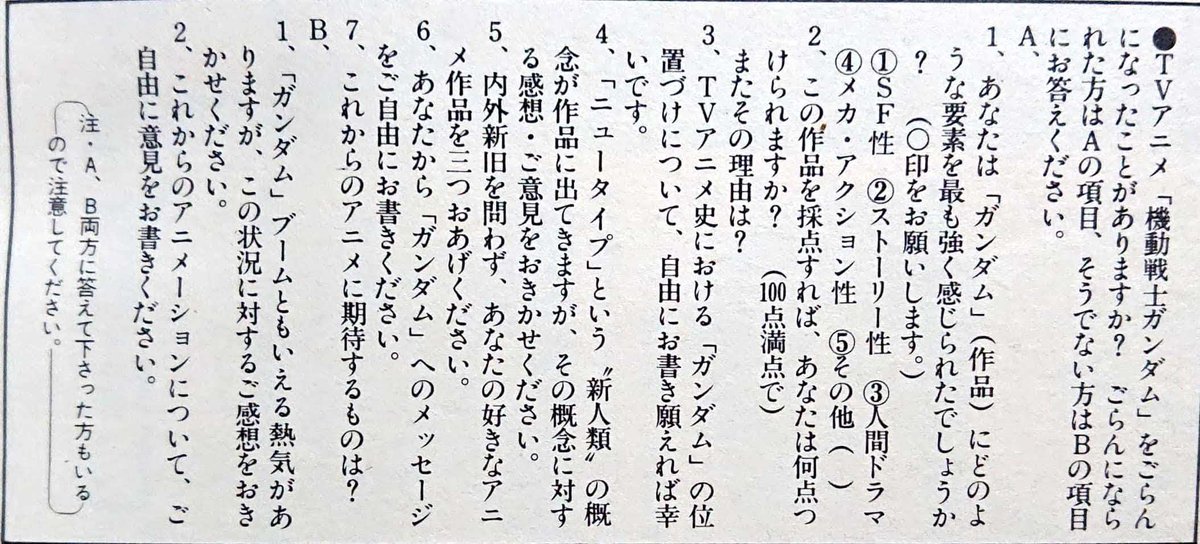 ●TVアニメ「機動戦士ガンダム」をごらん
になったことがありますか？　ごらんになら
れた方はAの項目、そうでない方はBの項目
にお答えください。
A、
1、あなたは「ガンダム」（作品）にどのよ
うな要素を最も強く感じられたでしょうか
？　（○印をお願いします。）
①SF性　②ストーリー性　③人間ドラマ
④メカ・アクション性　⑤その他（　）
2、この作品を採点すれば、あなたは何点つ
けられますか？　（100点満点で）
またその理由は？
3、TVアニメ史における「ガンダム」の位
置づけについて、自由にお書き願えれば幸
いです。
4、「ニュータイプ」という〝新人類〟の概
念が作品に出てきますが、その概念に対す
る感想・ご意見をおきかせください。
5、内外新旧を問わず、あなたの好きなアニ
メ作品を三つおあげください。
6、あなたから「ガンダム」へのメッセージ
をご自由にお書きください。
7、これからのアニメに期待するものは？
B、
1、「ガンダム」ブームともいえる熱気があ
りますが、この状況に対するご感想をおき
かせください。
2、これからのアニメーションについて、ご
自由に意見をお書きください。
注・A、B両方に答えて下さった方もいる
ので注意してください。